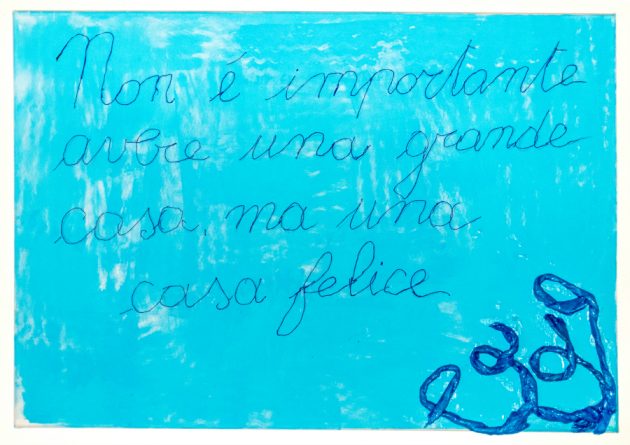 Non é importante
avere una grande
casa, ma una
casa felice